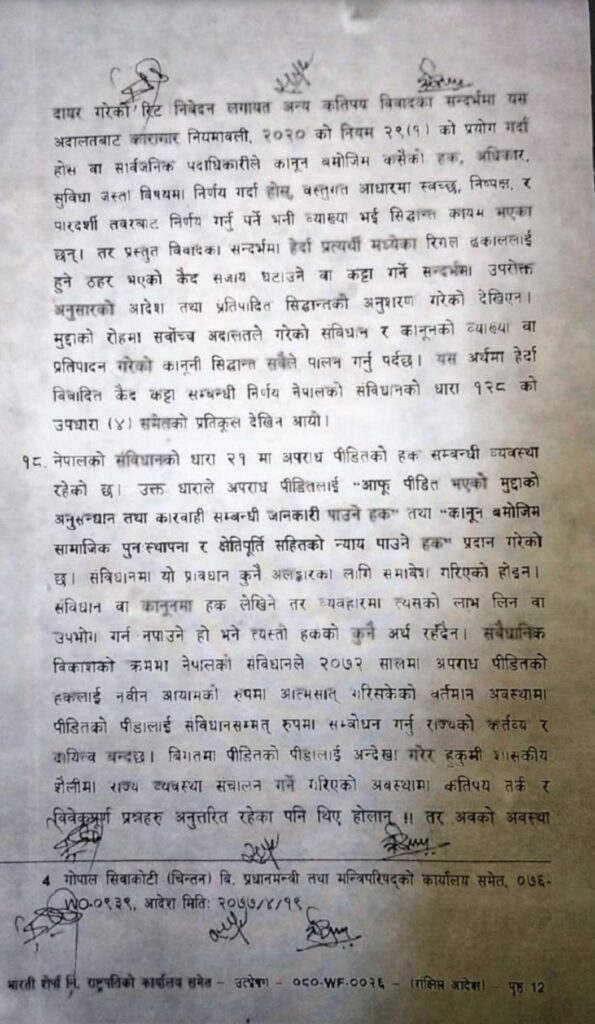 दायर गरेको रिट निवेदन लगायत अन्य कतिपय विवादका सन्दर्भमा यस
अदालतबाट कारागार नियमावली, २०२० को नियम २९(१) को प्रयोग गर्दा
होस वा सार्वजनिक पदाधिकारीले कानून बमोजिम कसैको हक, अधिकार,
सुविधा जस्ता विषयमा निर्णय गर्दा होस्, वस्तुगत आधारमा स्वच्छ, निष्पक्ष, र
पारदर्शी तवरबाट निर्णय गर्नु पर्ने भनी व्याख्या भई सिद्धान्त कायम भएका
छन्। तर प्रस्तुत विवादका सन्दर्भमा हेर्दा प्रत्यर्थी मध्येका रिगल ढकाललाई
हुने ठहर भएको कैद सजाय घटाउने वा कट्टा गर्ने सन्दर्भमा उपरोक्त
अनुसारको आदेश तथा प्रतिपादित सिद्धान्तको अनुशरण गरेको देखिएन।
मुद्दाको रोहमा सर्वोच्च अदालतले गरेको संविधान र कानूनको व्याख्या वा
प्रतिपादन गरेको कानूनी सिद्धान्त सबैले पालन गर्नु पर्दछ। यस अर्थमा हेर्दा
विवादित कैद कट्टा सम्बन्धी निर्णय नेपालको संविधानको धारा १२८ को
उपधारा (४) समेतको प्रतिकूल देखिन आयो।
१८. नेपालको संविधानको धारा २१ मा अपराध पीडितको हक सम्बन्धी व्यवस्था
रहेको छ। उक्त धाराले अपराध पीडितलाई “आफू पीडित भएको मुद्दाको
अनुसन्धान तथा कारवाही सम्बन्धी जानकारी पाउने हक” तथा “कानून बमोजिम
सामाजिक पुनःस्थापना र क्षेतिपूर्ति सहितको न्याय पाउने हक” प्रदान गरेको
छ। संविधानमा यो प्रावधान कुनै अलङ्कारका लागि समावेश गरिएको होइन।
संविधान वा कानूनमा हक लेखिने तर व्यवहारमा त्यसको लाभ लिन वा
उपभोग गर्न नपाउने हो भने त्यस्तो हकको कुनै अर्थ रहँदैन। संवैधानिक
विकाशको क्रममा नेपालको संविधानले २०७२ सालमा अपराध पीडितको
हकलाई नवीन आयामको रुपमा आत्मसात् गरिसकेको वर्तमान अवस्थामा
पीडितको पीडालाई संविधानसम्मत् रुपमा सम्बोधन गर्नु राज्यको कर्तव्य र
दायित्व बन्दछ। बिगतमा पीडितको पीडालाई अन्देखा गरेर हुकुमी शासकीय
शैलीमा राज्य व्यवस्था संचालन गर्ने गरिएको अवस्थामा कतिपय तर्क र
विवेकपूर्ण प्रश्नहरु अनुत्तरित रहेका पनि थिए होलान् !! तर अबको अवस्था
4 गोपाल सिवाकोटी (चिन्तन) बि. प्रधानमन्त्री तथा मन्त्रिपरिषद्को कार्यालय समेत, ०७६-
WO-०९३९, आदेश मितिः २०७७/४/१९
भारती शेर्पा वि. राष्ट्रपतिको कार्यालय समेत – उत्प्रेषण – ०८०-WF-००२६ – (संक्षिप्त आदेश) – पृष्ठ 12